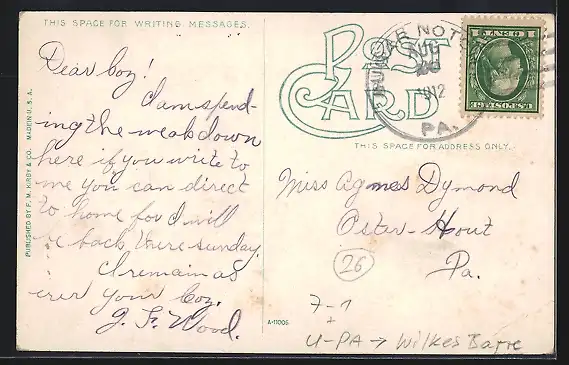 THIS SPACE FOR WRITING MESSAGES.
Dear Coz!
I am spend-
ing the week down
here if you write to
me you can direct
to home for I will
be back there sunday.
I remain as
ever your Coz.
J. F. Wood.
PUBLISHED BY F. M. KIRBY & CO. MADE IN U. S. A.
POST
CARD
NOT
AUG
1912
PA.
1 CENT 1
U.S. POSTAGE
THIS SPACE FOR ADDRESS ONLY.
Miss Agnes Dymond
Oster-Hout
Pa.
26
7-1
+
U-PA → Wilkes Barre
A-11006